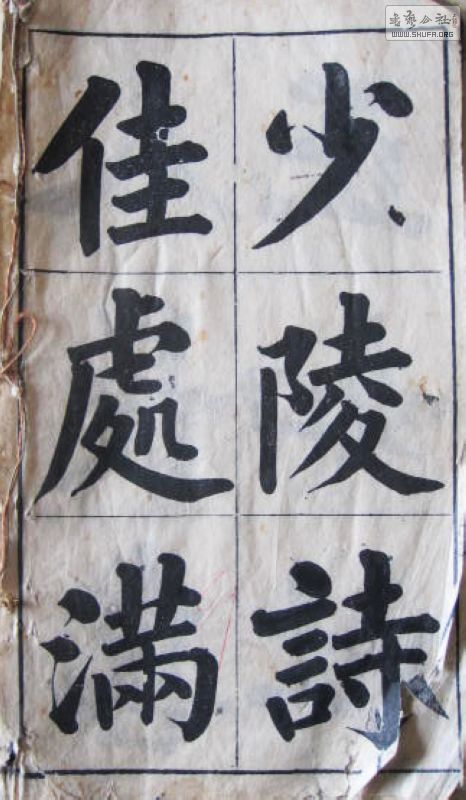 少陵詩
佳處滿
書藝公社
WWW.SHUFA.ORG